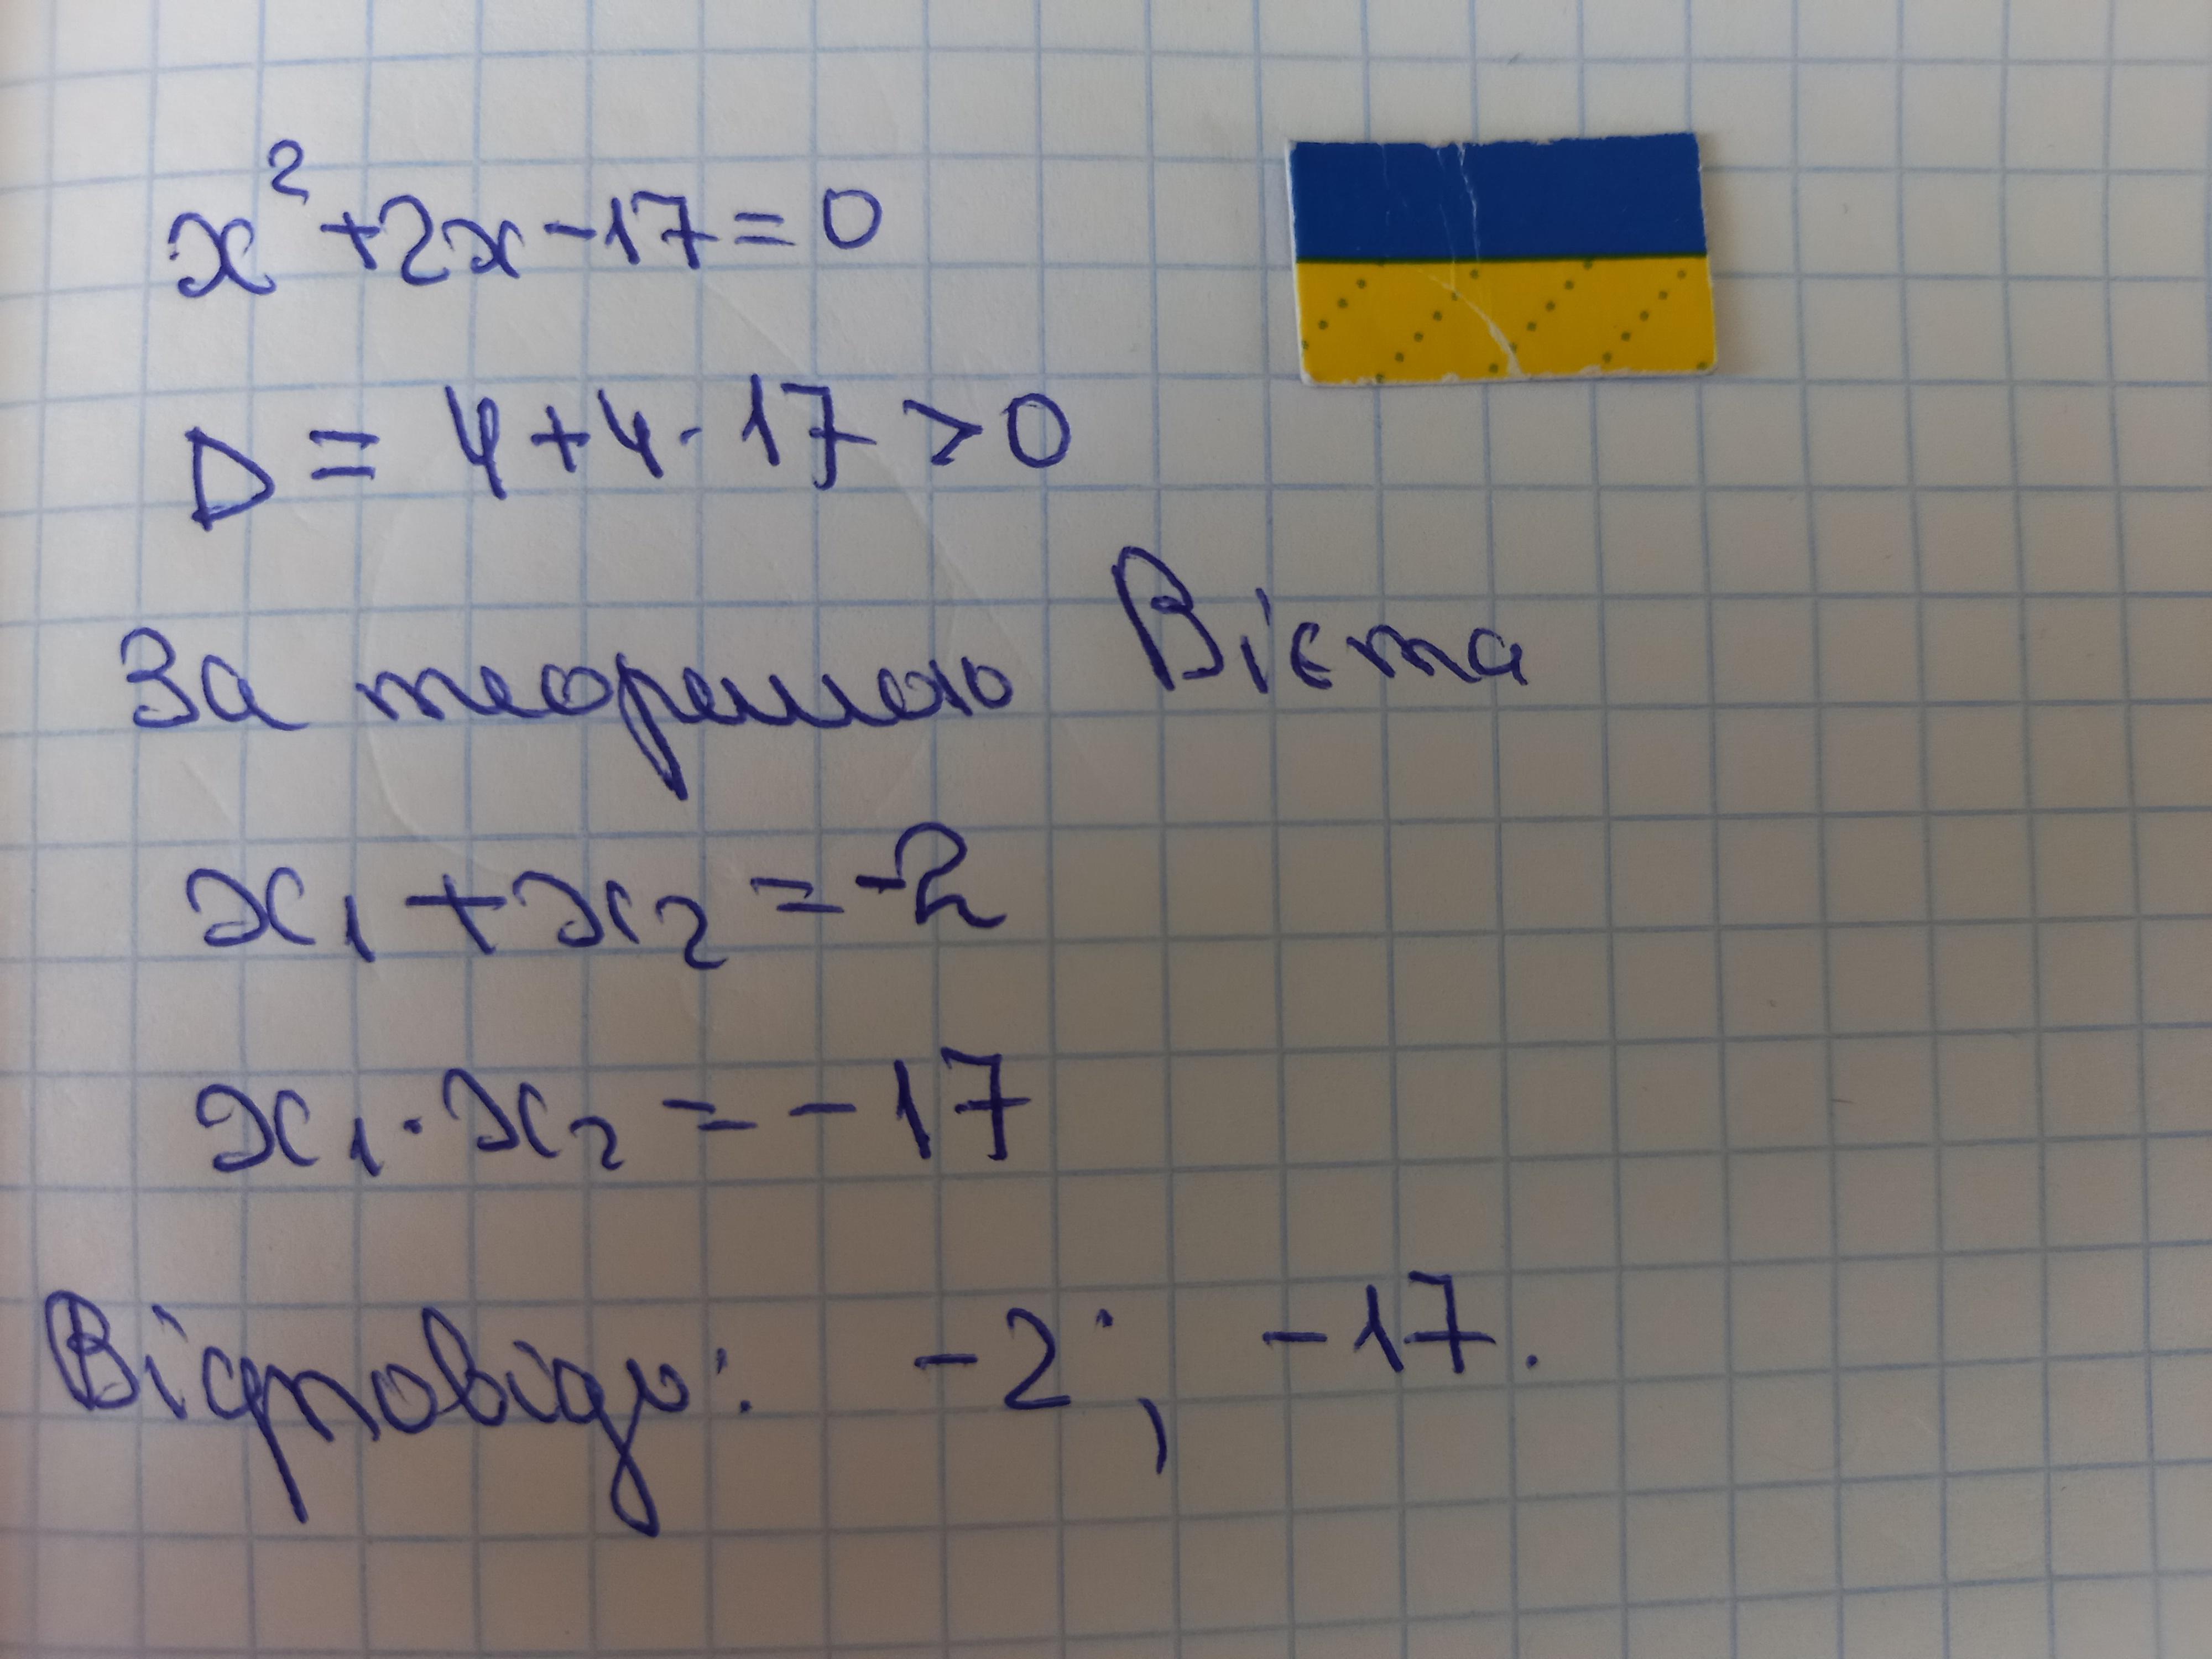 x² + 2x - 17 = 0
D = 4 + 4 · 17 > 0
За теоремою Вієта
x₁ + x₂ = -2
x₁ · x₂ = -17
Відповідь: -2; -17.